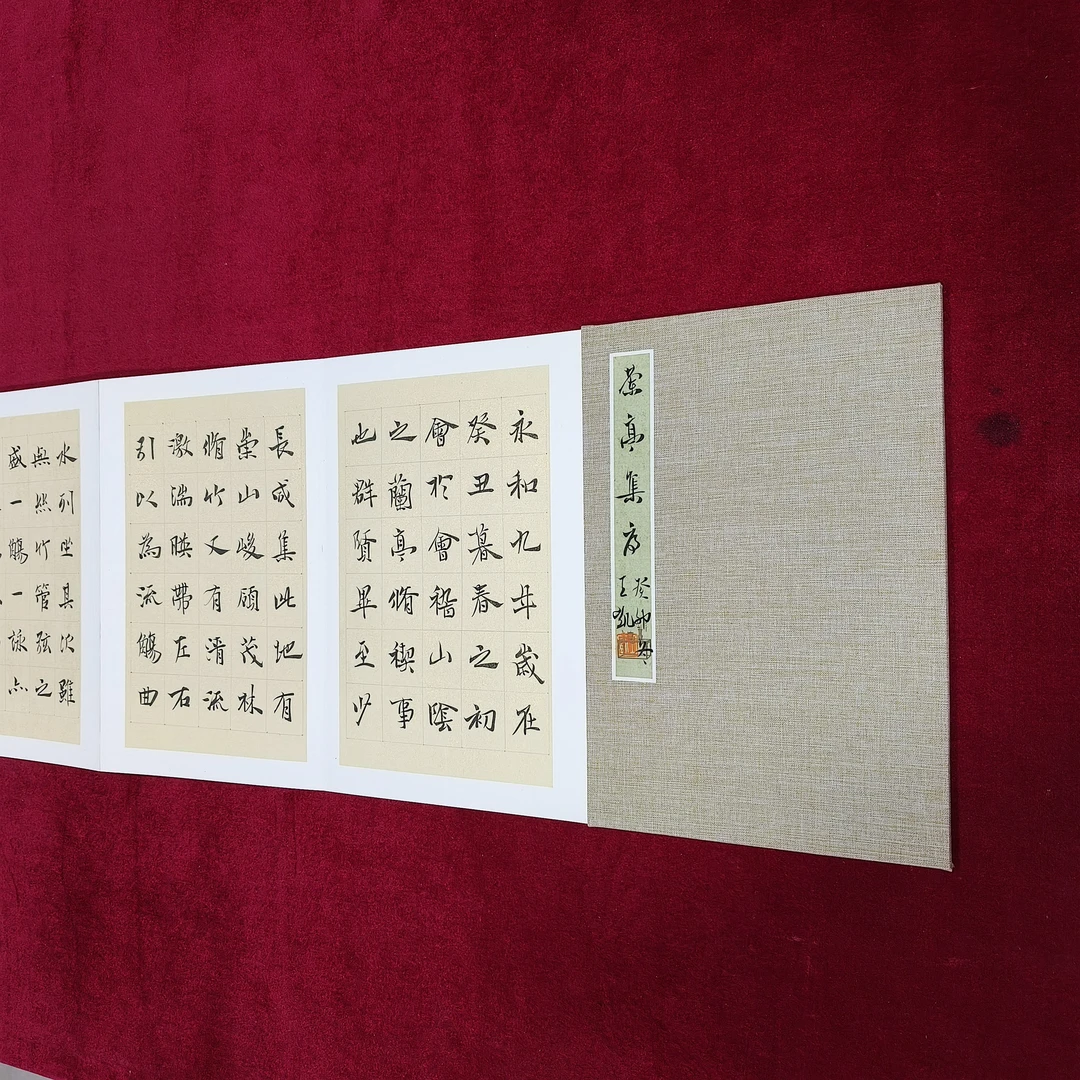 蘭亭集序
癸卯冬
王凱
永和九年歲在
癸丑暮春之初
會於會稽山陰
之蘭亭脩禊事
也群賢畢至少
長咸集此地有
崇山峻領茂林
脩竹又有清流
激湍暎帶左右
引以為流觴曲
水列坐其次雖
無絲竹管弦之
盛一觴一詠亦